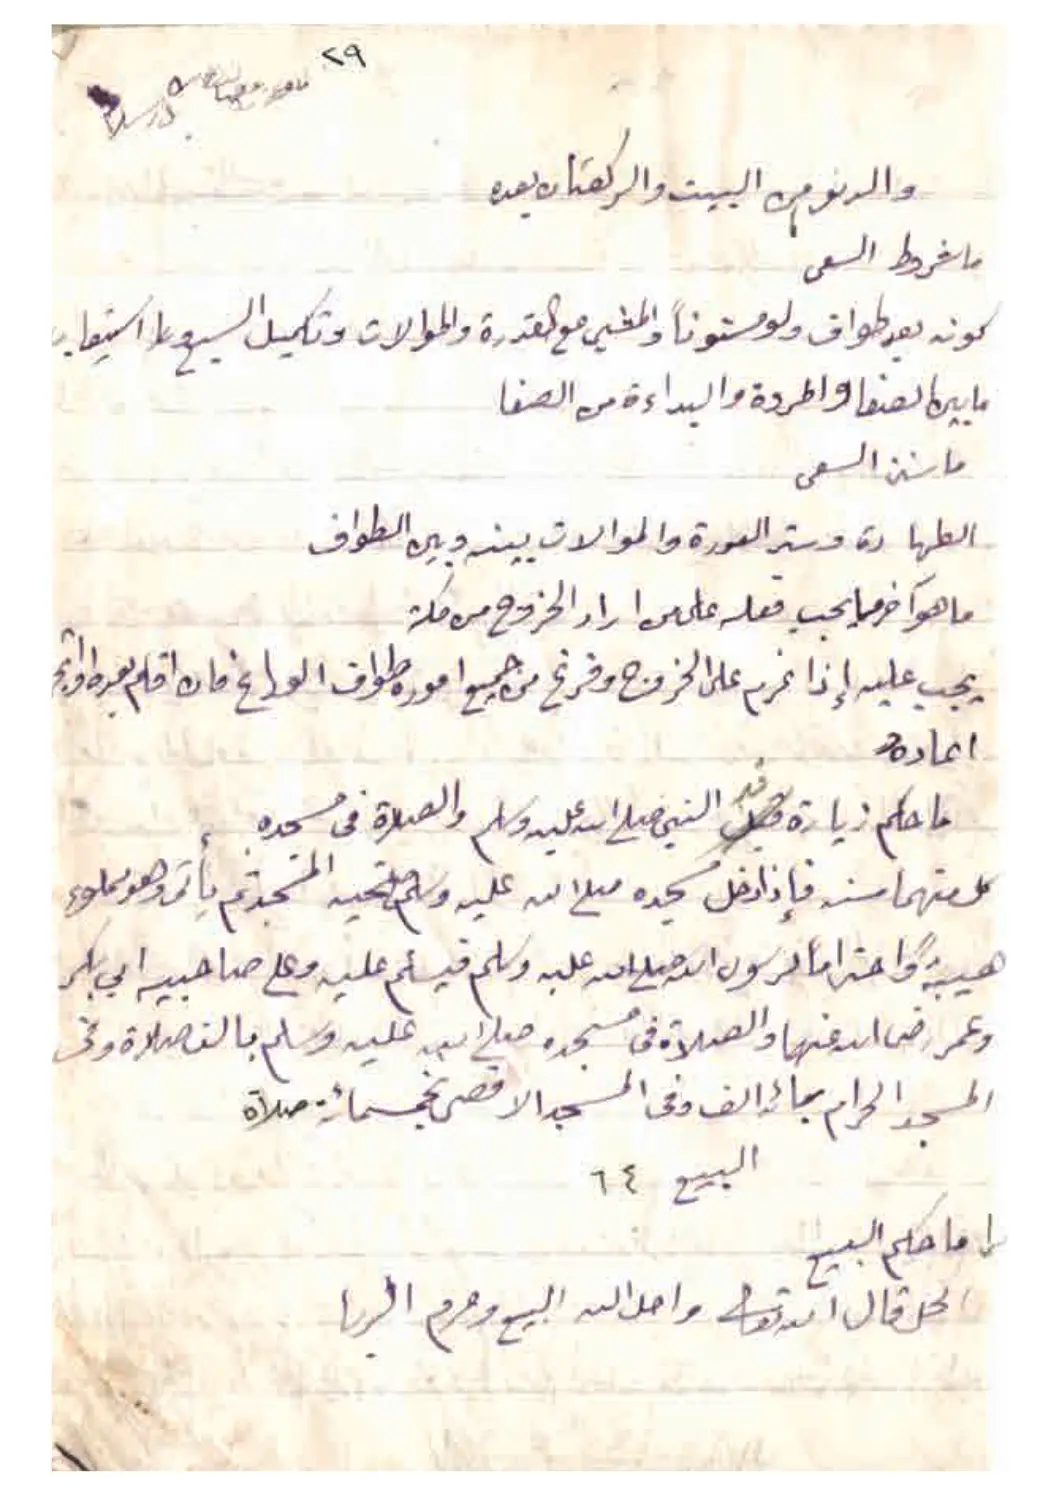 ٢٩
والدنو من البيت والركعتان بعده
ما شروط السعى
كونه بعد طواف ولو مسنوناً والمشي مع القدرة والموالات وتكميل السبع
ما بين الصفا والمروة والبداءة من الصفا
ما سنن السعى
الطهارة وستر العورة والموالات بينه وبين الطواف
ما هو آخر ما يجب فعله على من اراد الخروج من مكة
يجب عليه إذا عزم على الخروج وفرغ من جميع اموره طواف الوداع فان اقام بعده
اعاده
ما حكم زيارة قبر النبي صلى الله عليه وسلم والصلاة فى مسجده
كل منهما سنه فإذا دخل مسجده صلى الله عليه وسلم تحيه المسجد ثم يأتى وهو مملوء
هيبةً واحتراماً لرسول الله صلى الله عليه وسلم فيسلم عليه وعلى صاحبيه ابي بكر
وعمر رضى الله عنهما والصلاة فى مسجده صلى الله عليه وسلم بالف صلاة وفى
المسجد الحرام بمائه الف وفى المسجد الاقصى بخمسمائة صلاة
البيع ٦٤
ما حكم البيع
الحل قال الله تعالى واحل الله البيع وحرم الربا